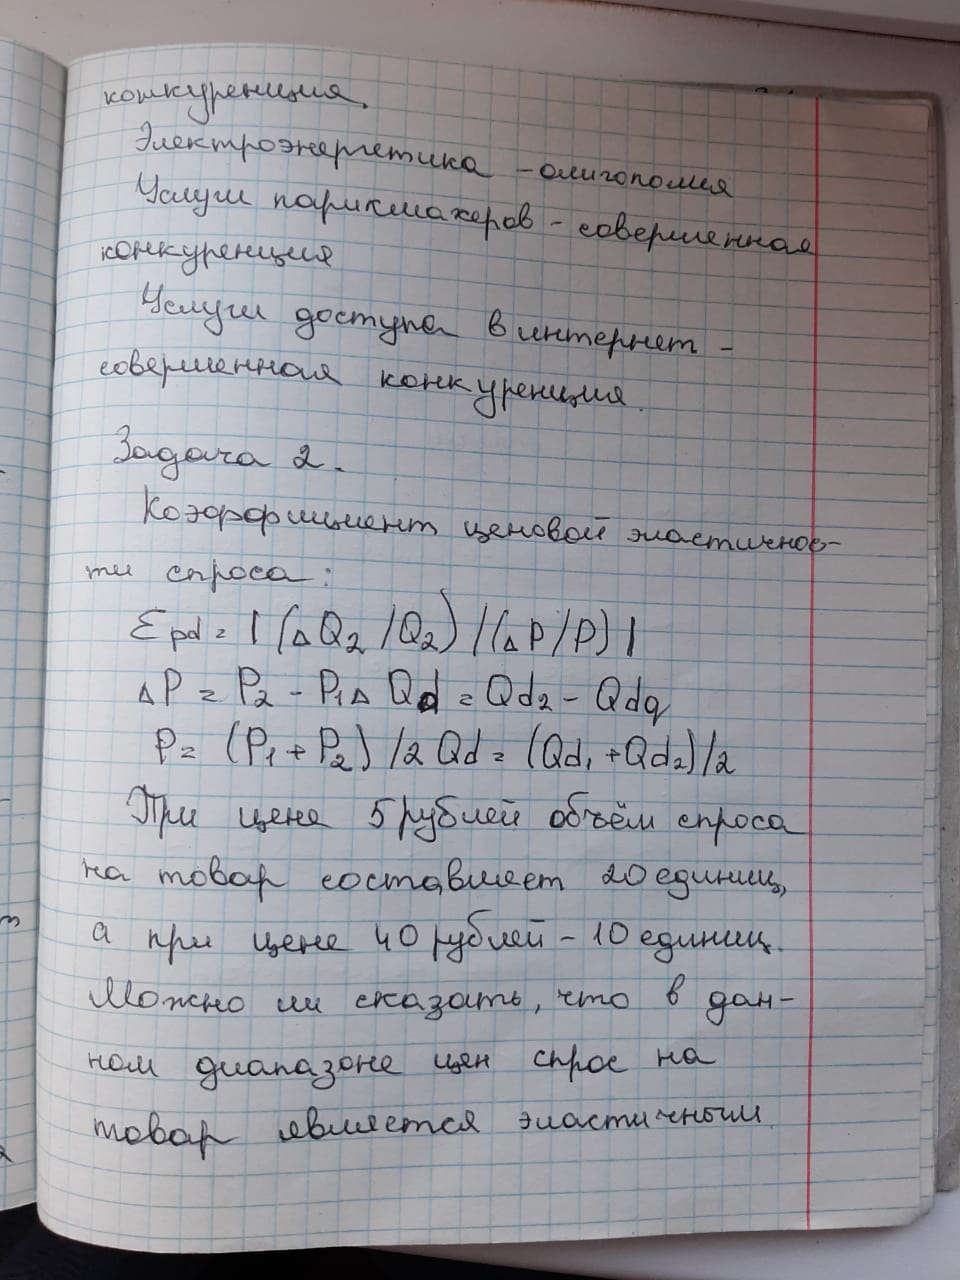 конкуренция.
Электроэнергетика - олигополия
Услуги парикмахеров - совершенная
конкуренция
Услуги доступа в интернет -
совершенная конкуренция.
Задача 2.
Коэффициент ценовой эластичнос-
ти спроса:
Epd = | (ΔQ2/Q2) / (ΔP/P) |
ΔP = P2 - P1 Δ Qd = Qd2 - Qdq
P = (P1 + P2) /2 Qd = (Qd1 + Qd2)/2
При цене 5 рублей объём спроса
на товар составляет 20 единиц,
а при цене 40 рублей - 10 единиц.
Можно ли сказать, что в дан-
ном диапазоне цен спрос на
товар является эластичным.